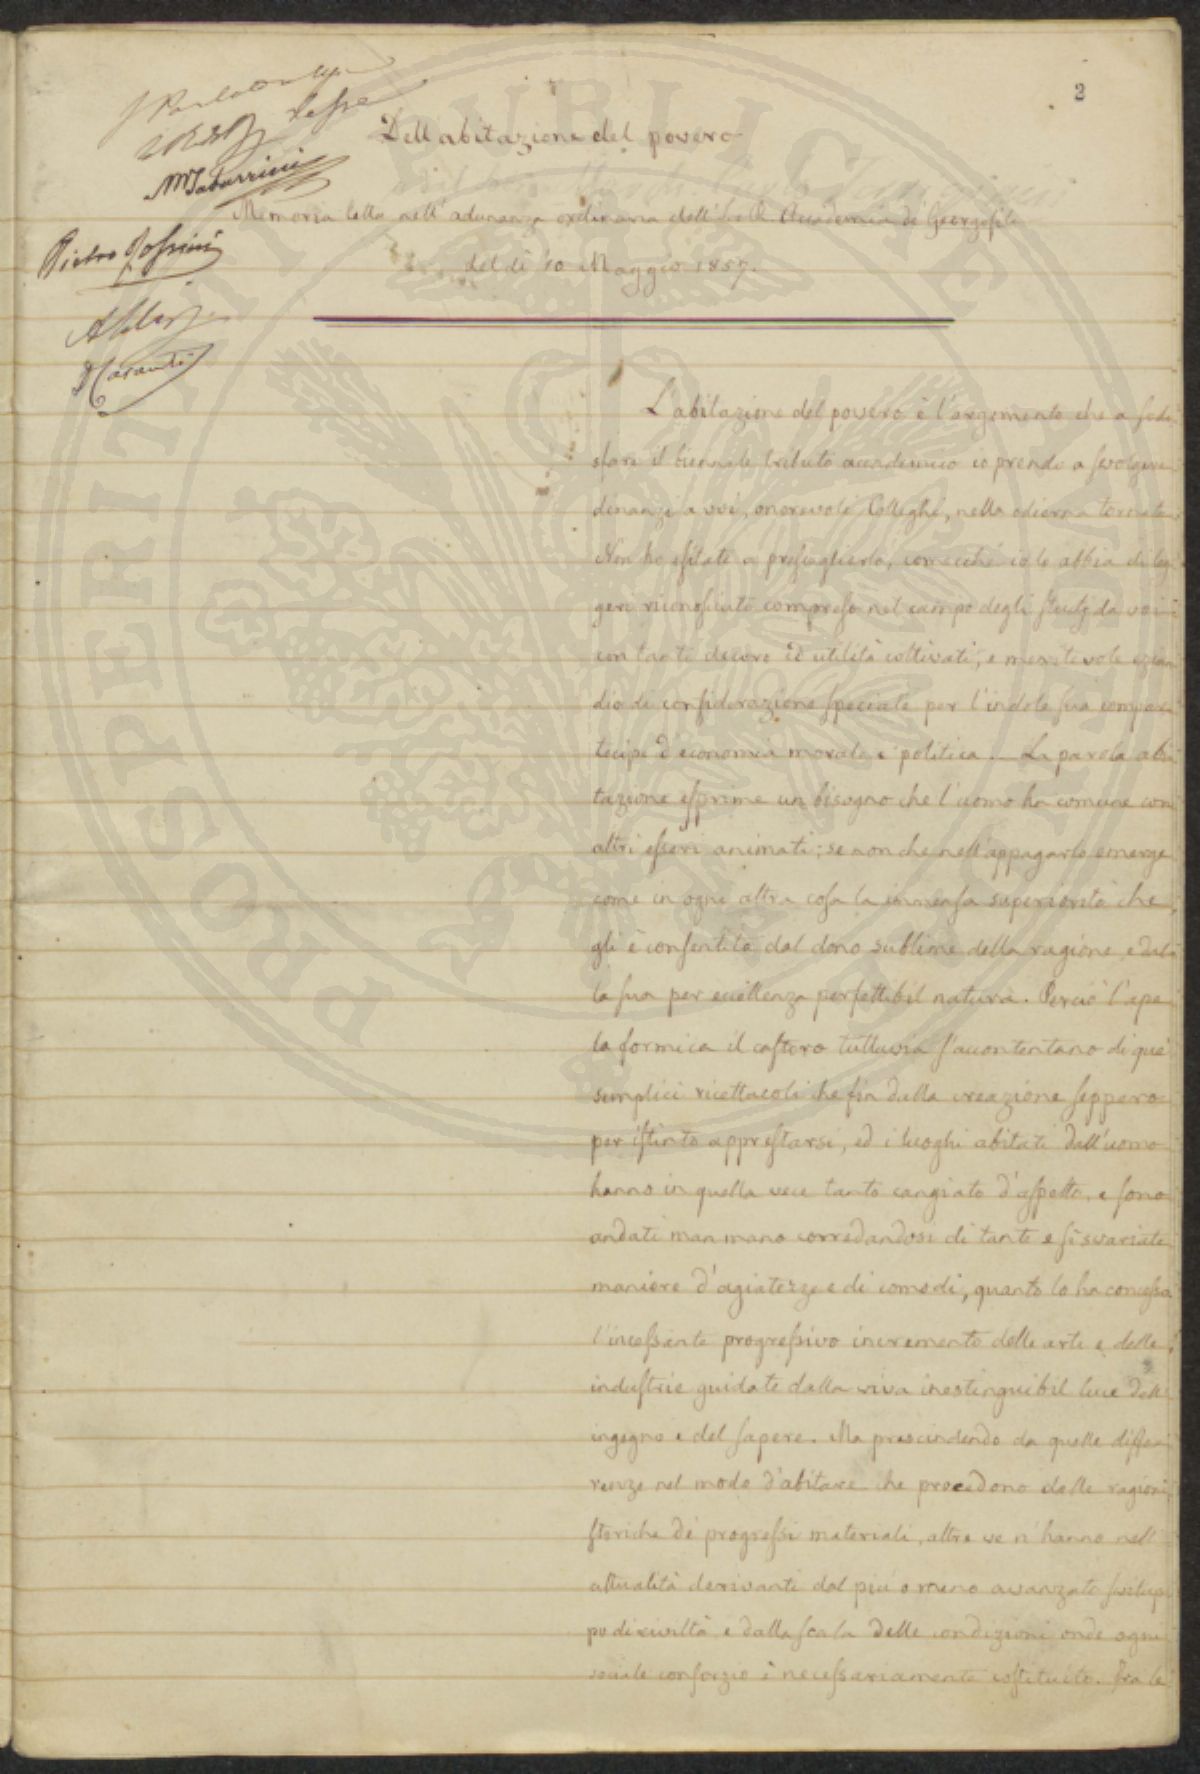 2
Dell'abitazione del povero
MTabarrini
Memoria letta nell'adunanza ordinaria dell'I. e R. Accademia de' Georgofili
Pietro
del dì 10 Maggio 1857.
L'abitazione del povero è l'argomento che a sodi-
sfare il biennale tributo accademico io prendo a svolgere
dinanzi a voi, onorevoli Colleghi, nella odierna tornata.
Non ho esitato a presceglierlo, comecché io lo abbia di leg-
geri riconosciuto compreso nel campo degli studj da voi
con tanto decoro ed utilità coltivati, e meritevole ezian-
dio di considerazione speciale per l'indole sua compar-
tecipe d'economia morale e politica. — La parola abi-
tazione esprime un bisogno che l'uomo ha comune con
altri esseri animati; se non che nell'appagarlo emerge
come in ogni altra cosa la immensa superiorità che
gli è consentita dal dono sublime della ragione, e dal-
la sua per eccellenza perfettibil natura. Perciò l'ape
la formica il castoro tuttavia s'accontentano di que'
semplici ricettacoli che fin dalla creazione seppero
per istinto apprestarsi, ed i luoghi abitati dall'uomo
hanno in quella vece tanto cangiato d'aspetto, e sono
andati man mano corredandosi di tante e sì svariate
maniere d'agiatezze e di comodi, quanto lo ha concesso
l'incessante progressivo incremento delle arti e delle
industrie guidate dalla viva inestinguibil luce dell'
ingegno e del sapere. Ma prescindendo da quelle diffe-
renze nel modo d'abitare che procedono dalle ragioni
storiche de' progressi materiali, altre ve n'hanno nell'
attualità derivanti dal più o meno avanzato svilup-
po di civiltà e dalla scala delle condizioni onde ogni
sociale consorzio è necessariamente costituito. Fra le
PROSPERITATI PUBLICAE